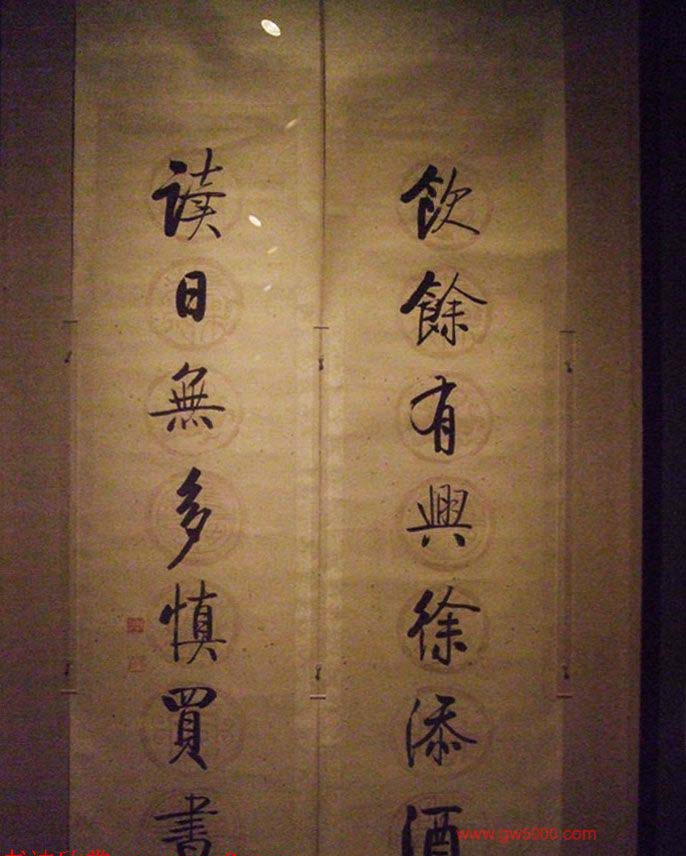 飲餘有興徐添酒
读日無多慎買書
www.gw5000.com